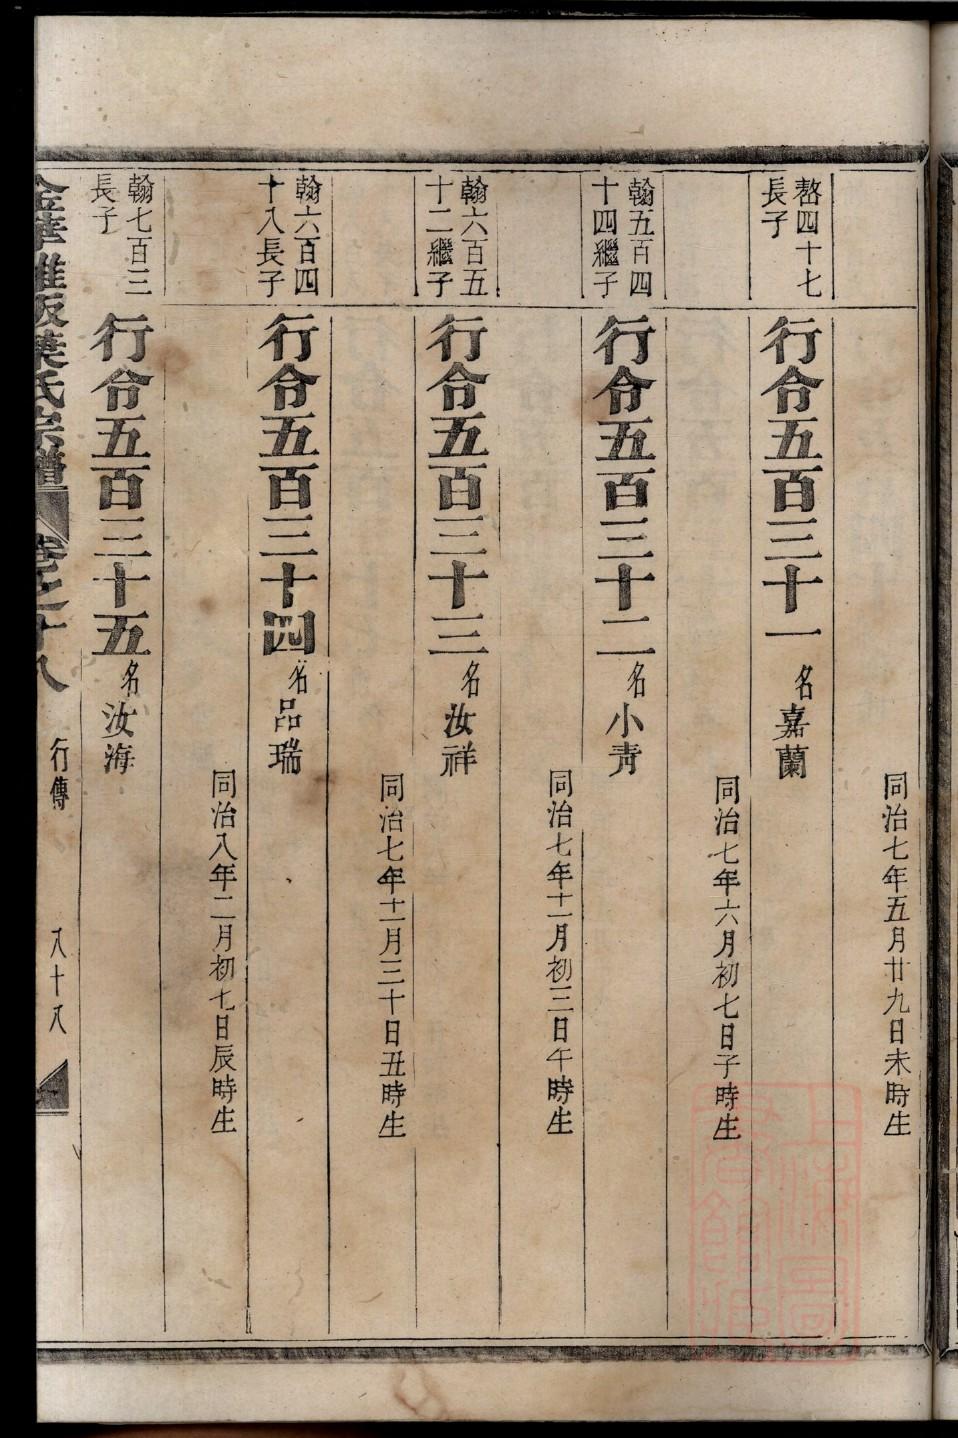 同治七年五月廿九日未時生
嶅四十七
長子
行令五百三十一名嘉蘭
同治七年六月初七日子時生
翰五百四
十四繼子
行令五百三十二名小青
同治七年十一月初三日午時生
翰六百五
十二繼子
行令五百三十三名汝祥
同治七年十二月三十日丑時生
翰六百四
十八長子
行令五百三十四名品瑞
同治八年二月初七日辰時生
翰七百三
長子
行令五百三十五名汝海
金華雅畈葉氏宗譜 卷之十八 行傳 八十八